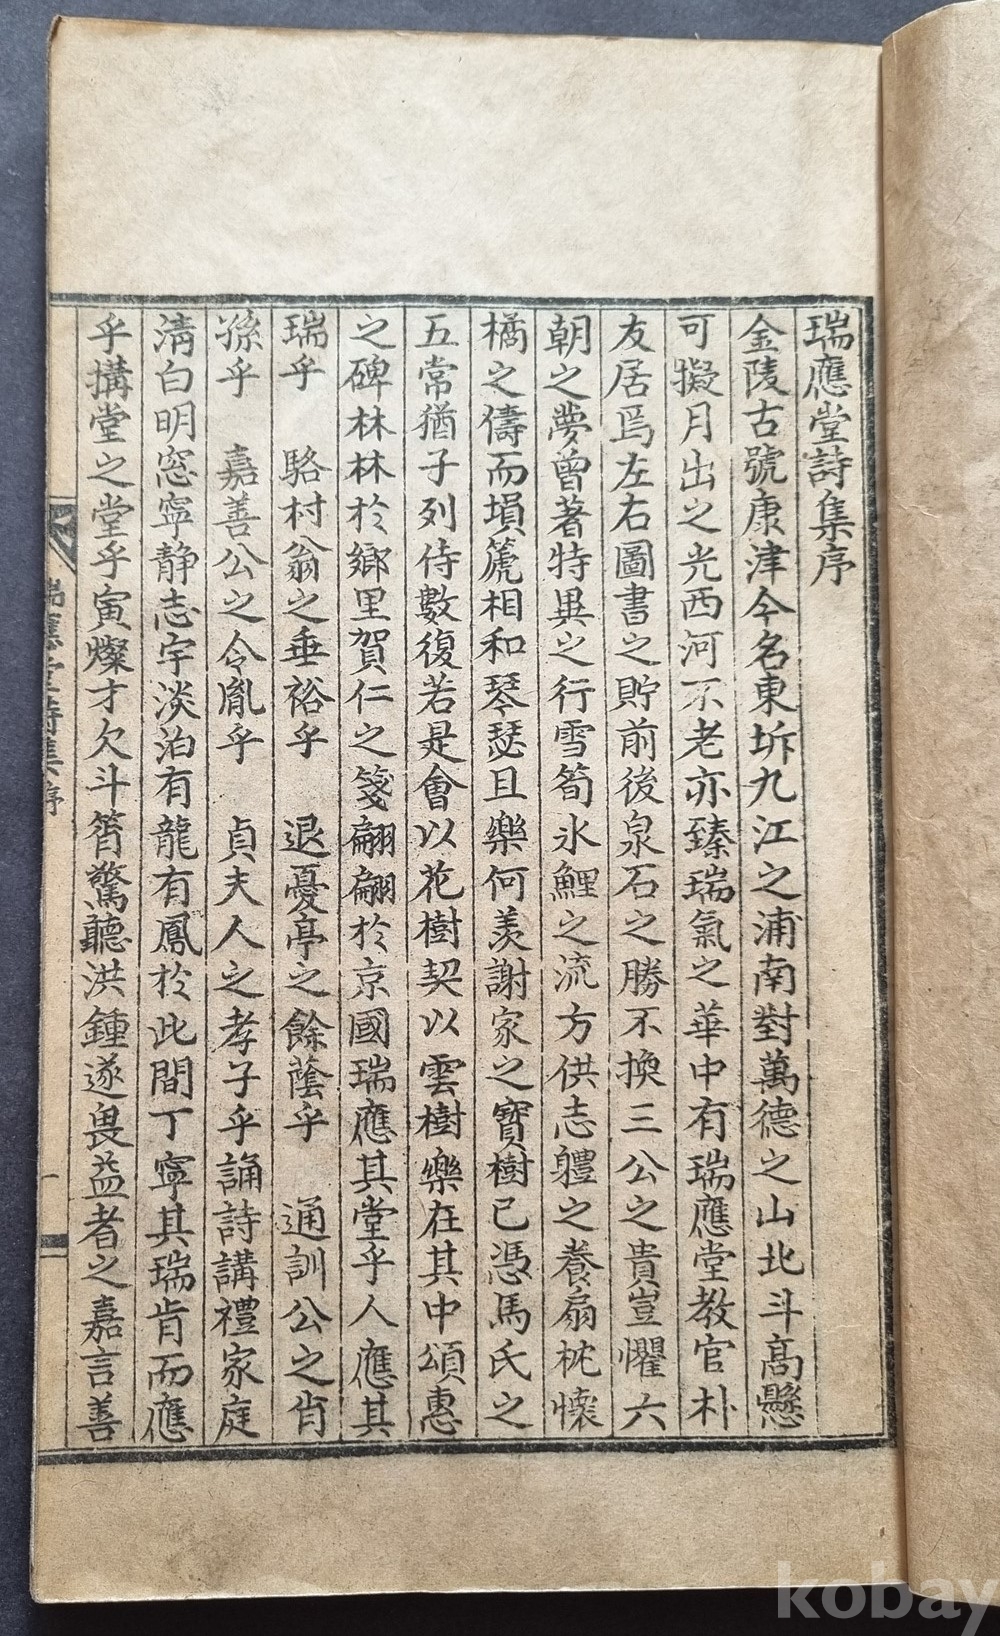 瑞應堂詩集序
金陵古號康津今名東圻九江之浦南對萬德之山北斗高懸
可擬月出之光西河不老亦臻瑞氣之華中有瑞應堂教官朴
友居焉左右圖書之貯前後泉石之勝不換三公之貴豈懼六
朝之夢曾著特異之行雪筍氷鯉之流方供志軆之養扇枕懷
橘之儔而塤箎相和琴瑟且樂何羨謝家之寶樹已憑馬氏之
五常猶子列侍數復若是會以花樹契以雲樹樂在其中頌惠
之碑林林於鄉里賀仁之箋翩翩於京國瑞應其堂乎人應其
瑞乎 駱村翁之垂裕乎 退憂亭之餘蔭乎 通訓公之肖
孫乎 嘉善公之令胤乎 貞夫人之孝子乎誦詩講禮家庭
淸白明窓寧静志宇淡泊有龍有鳳於此間丁寧其瑞肯而應
乎搆堂之堂乎寅燦才欠斗筲驚聽洪鍾遂畏益者之嘉言善
瑞應堂詩集序
一
kobay